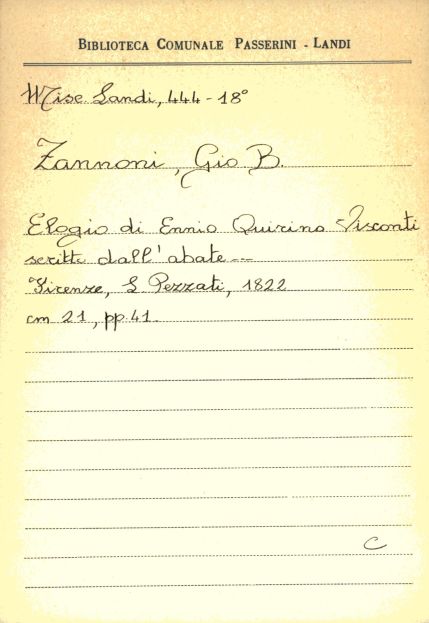 BIBLIOTECA COMUNALE PASSERINI - LANDI
Misc Landi, 444-18°
Zannoni, Gio B.
Elogio di Ennio Quirino Visconti
scritto dall'abate ---
Firenze, L Pezzati, 1822
cm 21, pp. 41.
C